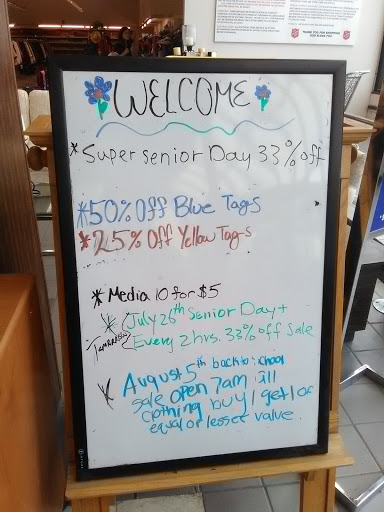 WELCOME
*Super senior Day 33% off
*50% Off Blue Tags
*25% Off Yellow Tags
* Media 10 for $5
* July 26th Senior Day +
Tomorrow Every 2 hrs. 33% off Sale
* August 5th back to school
sale open 7am, all
clothing buy 1 get 1 of
equal or lesser value.